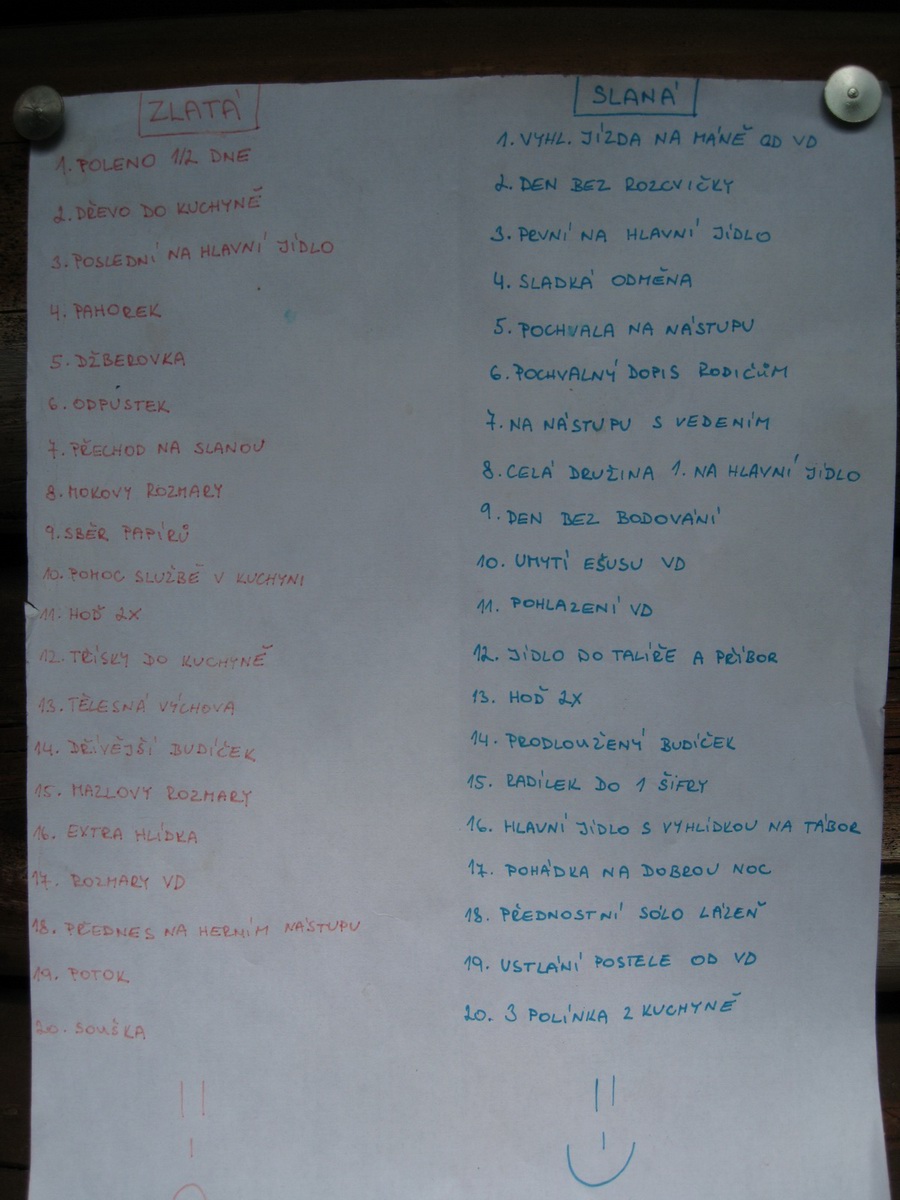 ZLATÁ
1. POLENO 1/2 DNE
2. DŘEVO DO KUCHYNĚ
3. POSLEDNÍ NA HLAVNÍ JÍDLO
4. PAHOREK
5. DŽBEROVKA
6. ODPUSTEK
7. PŘECHOD NA SLANOU
8. MOKOVY ROZMARY
9. SBĚR PAPÍRŮ
10. POMOC SLUŽBĚ V KUCHYNI
11. HOĎ 2X
12. TŘÍSKY DO KUCHYNĚ
13. TĚLESNÁ VÝCHOVA
14. DŘÍVĚJŠÍ BUDÍČEK
15. MAZLOVY ROZMARY
16. EXTRA HLÍDKA
17. ROZMARY VD
18. PŘEDNES NA HERNÍM NÁSTUPU
19. POTOK
20. SOUŠKA
SLANÁ
1. VYHL. JÍZDA NA MÁNĚ OD VD
2. DEN BEZ ROZCVIČKY
3. PRVNÍ NA HLAVNÍ JÍDLO
4. SLADKÁ ODMĚNA
5. POCHVALA NA NÁSTUPU
6. POCHVALNÝ DOPIS RODIČŮM
7. NA NÁSTUPU S VEDENÍM
8. CELÁ DRUŽINA 1. NA HLAVNÍ JÍDLO
9. DEN BEZ BODOVÁNÍ
10. UMYTÍ EŠUSU VD
11. POHLAZENÍ VD
12. JÍDLO DO TALÍŘE A PŘÍBOR
13. HOĎ 2X
14. PRODLOUŽENÝ BUDÍČEK
15. RADÍLEK DO 1 ŠIFRY
16. HLAVNÍ JÍDLO S VYHLÍDKOU NA TÁBOR
17. POHÁDKA NA DOBROU NOC
18. PŘEDNOSTNÍ SÓLO LÁZEŇ
19. USTLÁNÍ POSTELE OD VD
20. 3 POLÍNKA Z KUCHYNĚ